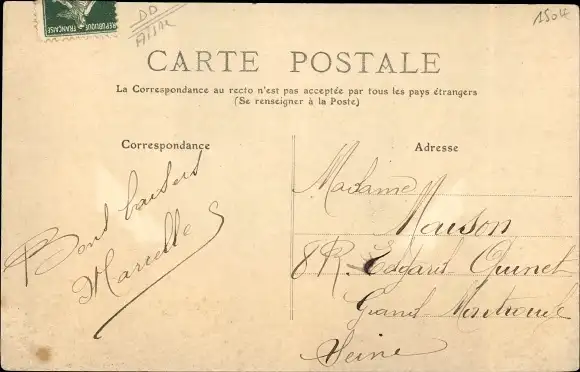 RÉPUBLIQUE
FRANÇAISE
DD
Aisne
1504
CARTE POSTALE
La Correspondance au recto n'est pas acceptée par tous les pays étrangers
(Se renseigner à la Poste)
Correspondance
Adresse
Bons baisers
Marcelle
Madame
Maison
8 R. Edgard Quinet
Grand Montrouge
Seine